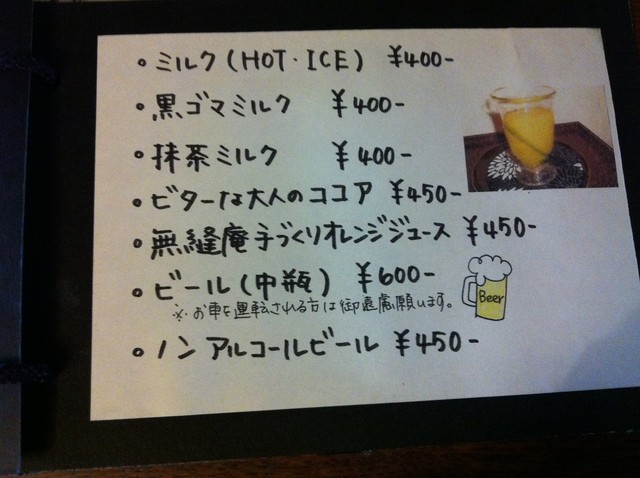 • ミルク(HOT・ICE) ¥400-
• 黒ゴマミルク ¥400-
• 抹茶ミルク ¥400-
• ビターな大人のココア ¥450-
• 無縫庵手づくりオレンジジュース ¥450-
• ビール(中瓶) ¥600-
Beer
※お車を運転される方は御遠慮願います。
• ノンアルコールビール ¥450-